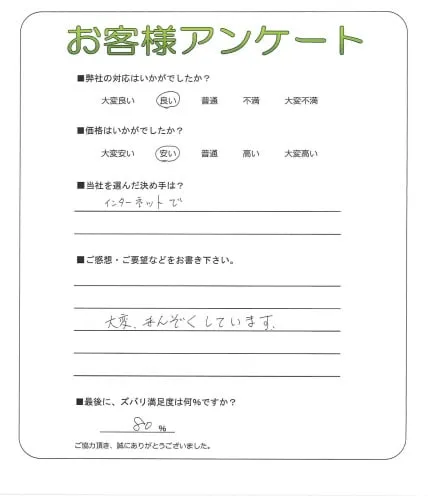 お客様アンケート
■弊社の対応はいかがでしたか？
大変良い 良い 普通 不満 大変不満
■価格はいかがでしたか？
大変安い 安い 普通 高い 大変高い
■当社を選んだ決め手は？
インターネットで
■ご感想・ご要望などをお書き下さい。
大変、まんぞくしています.
■最後に、ズバリ満足度は何％ですか？
80 ％
ご協力頂き、誠にありがとうございました。